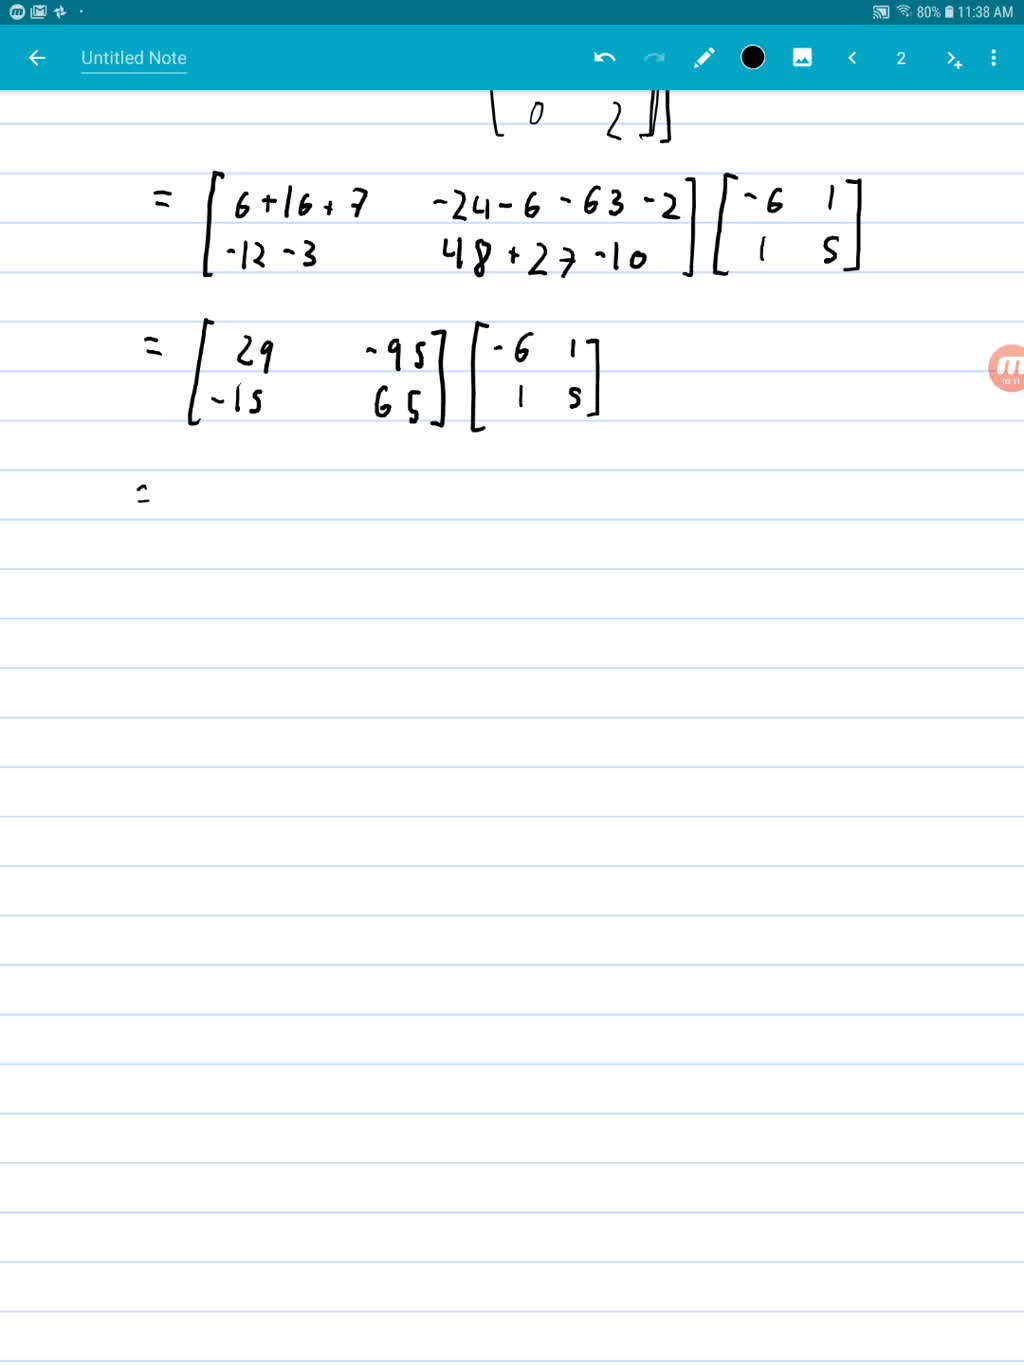 80% 11:38 AM
Untitled Note
2
0 2
= [ 6+16+7 -24-6-63-2 ] [ -6 1 ]
[ -12-3 48+27-10 ] [ 1 5 ]
= [ 29 -95 ] [ -6 1 ]
[ -15 65 ] [ 1 5 ]
=
03:11